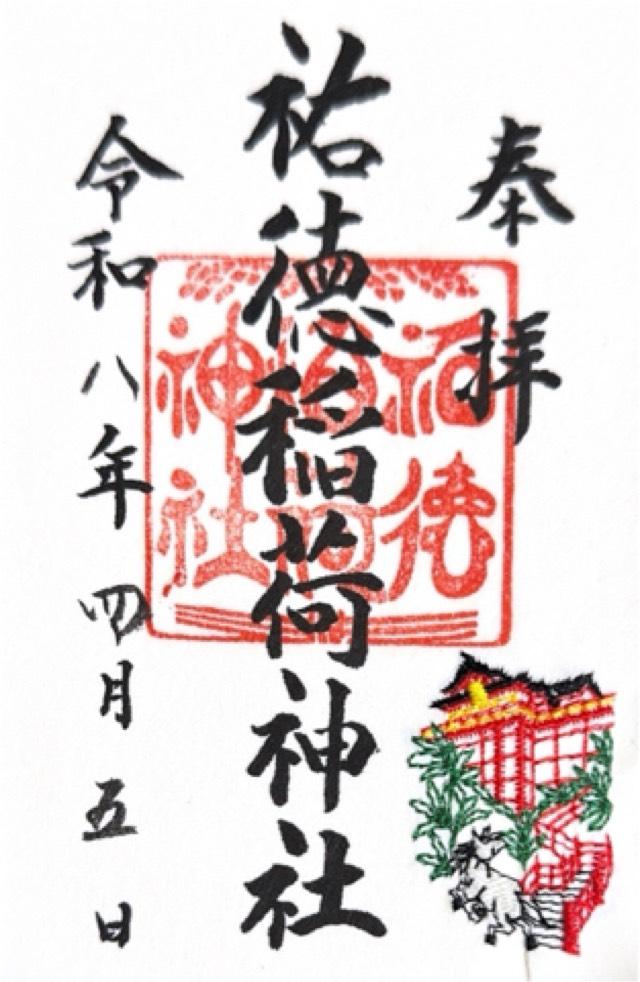 奉拝
祐徳稲荷神社
祐徳
稲荷
神社
令和八年四月五日